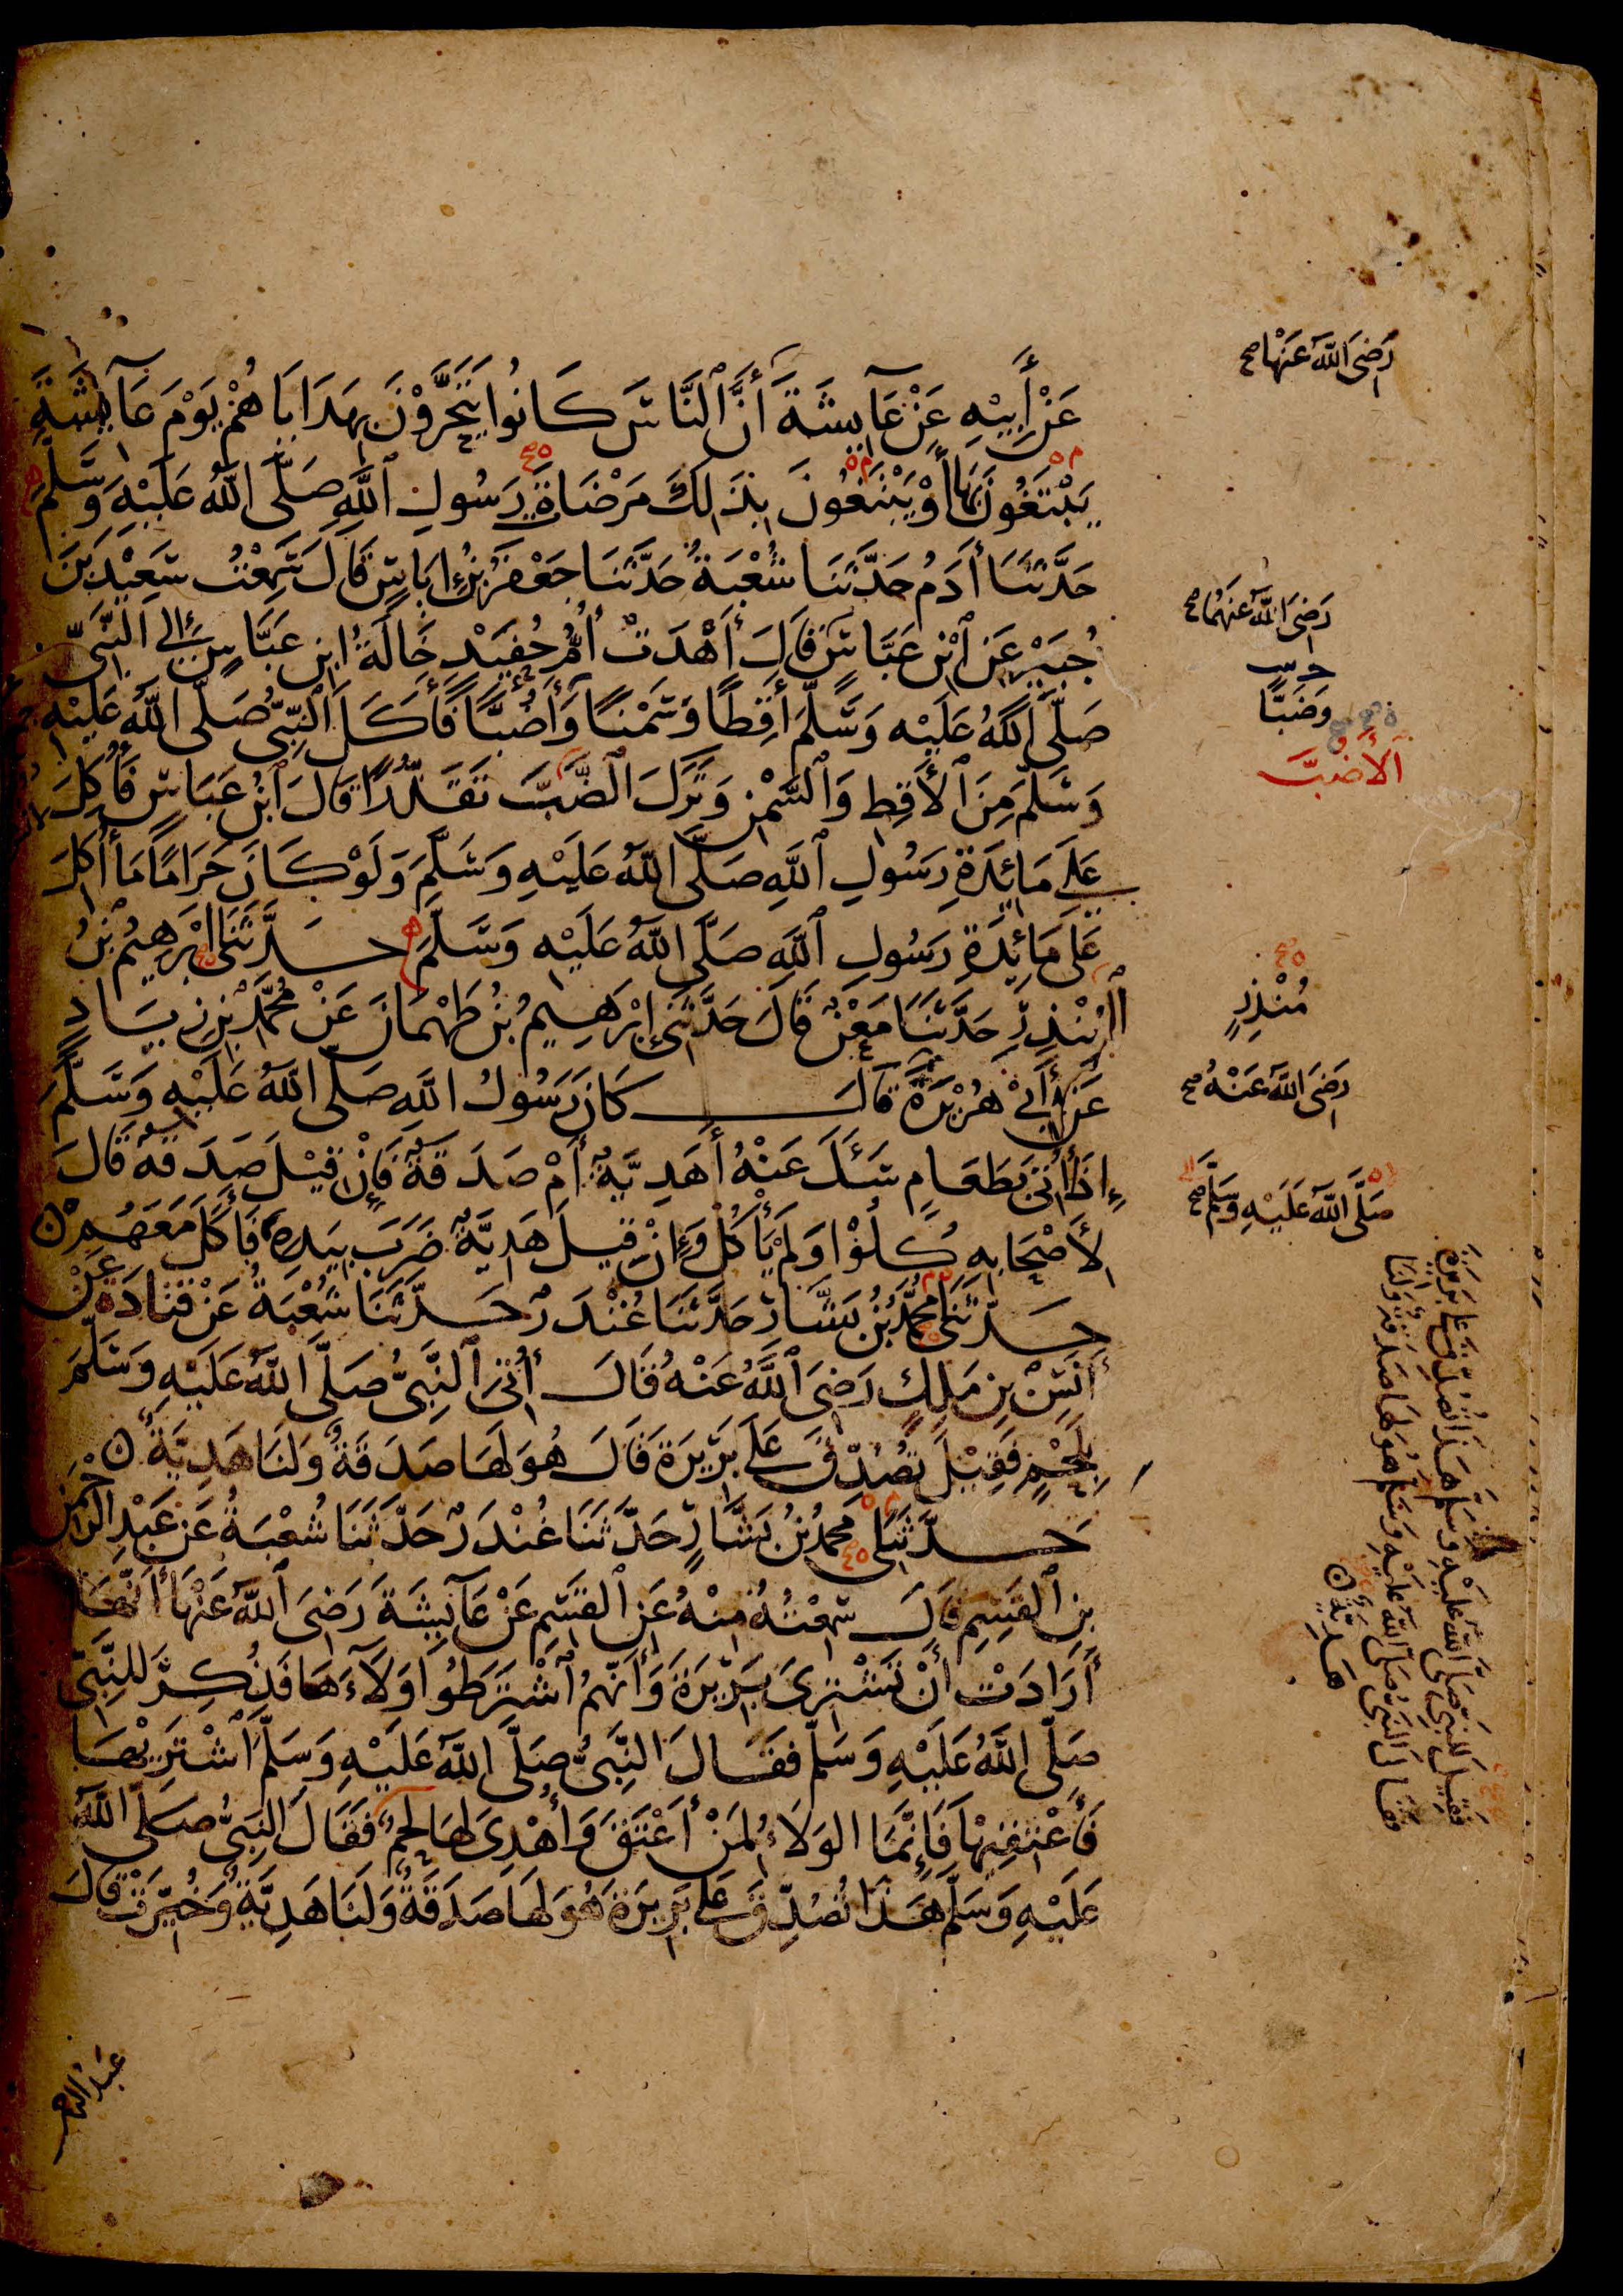 عَنْ أَبِيْهِ عَنْ عَآئِشَةَ أَنَّ ٱلنَّاسَ كَانُوا يَتَحَرَّوْنَ بِهَدَايَاهُمْ يَوْمَ عَآئِشَةَ
يَبْتَغُونَ بِهَا أَوْ يَبْتَغُونَ بِذَلِكَ مَرْضَاةَ رَسُولِ ٱللَّهِ صَلَّى اللَّهُ عَلَيْهِ وَسَلَّمَ
حَدَّثَنَا أَدَمُ حَدَّثَنَا شُعْبَةُ حَدَّثَنَا جَعْفَرُ بْنُ إِيَاسٍ قَالَ سَمِعْتُ سَعِيْدَ بْنَ
جُبَيْرٍ عَنِ ٱبْنِ عَبَّاسٍ قَالَ أَهْدَتْ أُمُّ حُفَيْدٍ خَالَةُ ابْنِ عَبَّاسٍ إِلَى النَّبِيِّ
صَلَّى اللَّهُ عَلَيْهِ وَسَلَّمَ أَقِطًا وَسَمْنًا وَأَضُبًّا فَأَكَلَ ٱلنَّبِيُّ صَلَّى اللَّهُ عَلَيْهِ
وَسَلَّمَ مِنَ ٱلأَقِطِ وَٱلسَّمْنِ وَتَرَكَ ٱلضَّبَّ تَقَذُّرًا قَالَ ٱبْنُ عَبَّاسٍ فَأُكِلَ
عَلَى مَائِدَةِ رَسُولِ ٱللَّهِ صَلَّى اللَّهُ عَلَيْهِ وَسَلَّمَ وَلَوْ كَانَ حَرَامًا مَا أُكِلَ
عَلَى مَائِدَةِ رَسُولِ ٱللَّهِ صَلَّى اللَّهُ عَلَيْهِ وَسَلَّمَ حَدَّثَنَى إِبْرَهِيمُ بْنُ
ٱلْمُنْذِرِ حَدَّثَنَا مَعْنٌ قَالَ حَدَّثَنِى إِبْرَهِيمُ بْنُ طَهْمَانَ عَنْ مُحَمَّدِ بْنِ زِيَادٍ
عَنْ أَبِى هُرَيْرَةَ قَالَ كَانَ رَسُولُ اللَّهِ صَلَّى اللَّهُ عَلَيْهِ وَسَلَّمَ
إِذَا أُتِىَ بِطَعَامٍ سَئَلَ عَنْهُ أَهَدِيَّةٌ أَمْ صَدَقَةٌ فَإِنْ قِيْلَ صَدَقَةٌ قَالَ
لأَصْحَابِهِ كُلُوْا وَلَمْ يَأْكُلْ وَإِنْ قِيلَ هَدِيَّةٌ ضَرَبَ بِيَدِهِ فَأَكَلَ مَعَهُمْ
حَدَّثَنَى مُحَمَّدُ بْنُ بَشَّارٍ حَدَّثَنَا غُنْدَرٌ حَدَّثَنَا شُعْبَةُ عَنْ قَتَادَةَ عَنْ
أَنَسِ بْنِ مَلِكٍ رَضِىَ ٱللَّهُ عَنْهُ قَالَ أُتِىَ ٱلنَّبِىُّ صَلَّى اللَّهُ عَلَيْهِ وَسَلَّمَ
بِلَحْمٍ فَقِيْلَ تُصُدِّقَ عَلَى بَرِيْرَةَ قَالَ هُوَ لَهَا صَدَقَةٌ وَلَنَا هَدِيَّةٌ
حَدَّثَنَى مُحَمَّدُ بْنُ بَشَّارٍ حَدَّثَنَا غُنْدَرٌ حَدَّثَنَا شُعْبَةُ عَنْ عَبْدِ الرَّحْمَنِ
بْنِ ٱلْقَسِمِ قَالَ سَمِعْتُهُ مِنْهُ عَنِ ٱلْقَسِمِ عَنْ عَآئِشَةَ رَضِىَ ٱللَّهُ عَنْهَا أَنَّهَا
أَرَادَتْ أَنْ تَشْتَرِىَ بَرِيْرَةَ وَأَنَّهُمُ ٱشْتَرَطُوا وَلَآءَهَا فَذُكِرَ لِلنَّبِىِّ
صَلَّى اللَّهُ عَلَيْهِ وَسَلَّمَ فَقَالَ النَّبِىُّ صَلَّى اللَّهُ عَلَيْهِ وَسَلَّمَ ٱشْتَرِيْهَا
فَأَعْتِقِيْهَا فَإِنَّمَا الوَلَاءُ لِمَنْ أَعْتَقَ وَأُهْدِىَ لَهَا لَحْمٌ فَقَالَ النَّبِىُّ صَلَّى اللَّهُ
عَلَيْهِ وَسَلَّمَ هَذَا تُصُدِّقَ عَلَى بَرِيْرَةَ هُوَ لَهَا صَدَقَةٌ وَلَنَا هَدِيَّةٌ وَخُيِّرَتْ قَالَ
رَضِىَ اللَّهُ عَنْهَا صح
رَضِىَ اللَّهُ عَنْهُمَا صح
وَضَبًّا
ٱلأَضُبَّ
مُنْذِرٍ
رَضِىَ اللَّهُ عَنْهُ صح
صَلَّى اللَّهُ عَلَيْهِ وَسَلَّمَ صح
فَقِيلَ لِلنَّبِىِّ صَلَّى اللَّهُ عَلَيْهِ وَسَلَّمَ هَذَا تُصُدِّقَ عَلَى بَرِيْرَةَ
فَقَالَ النَّبِىُّ صَلَّى اللَّهُ عَلَيْهِ وَسَلَّمَ هُوَ لَهَا صَدَقَةٌ وَلَنَا
هَدِيَّةٌ
عَبْدُ الرحمن